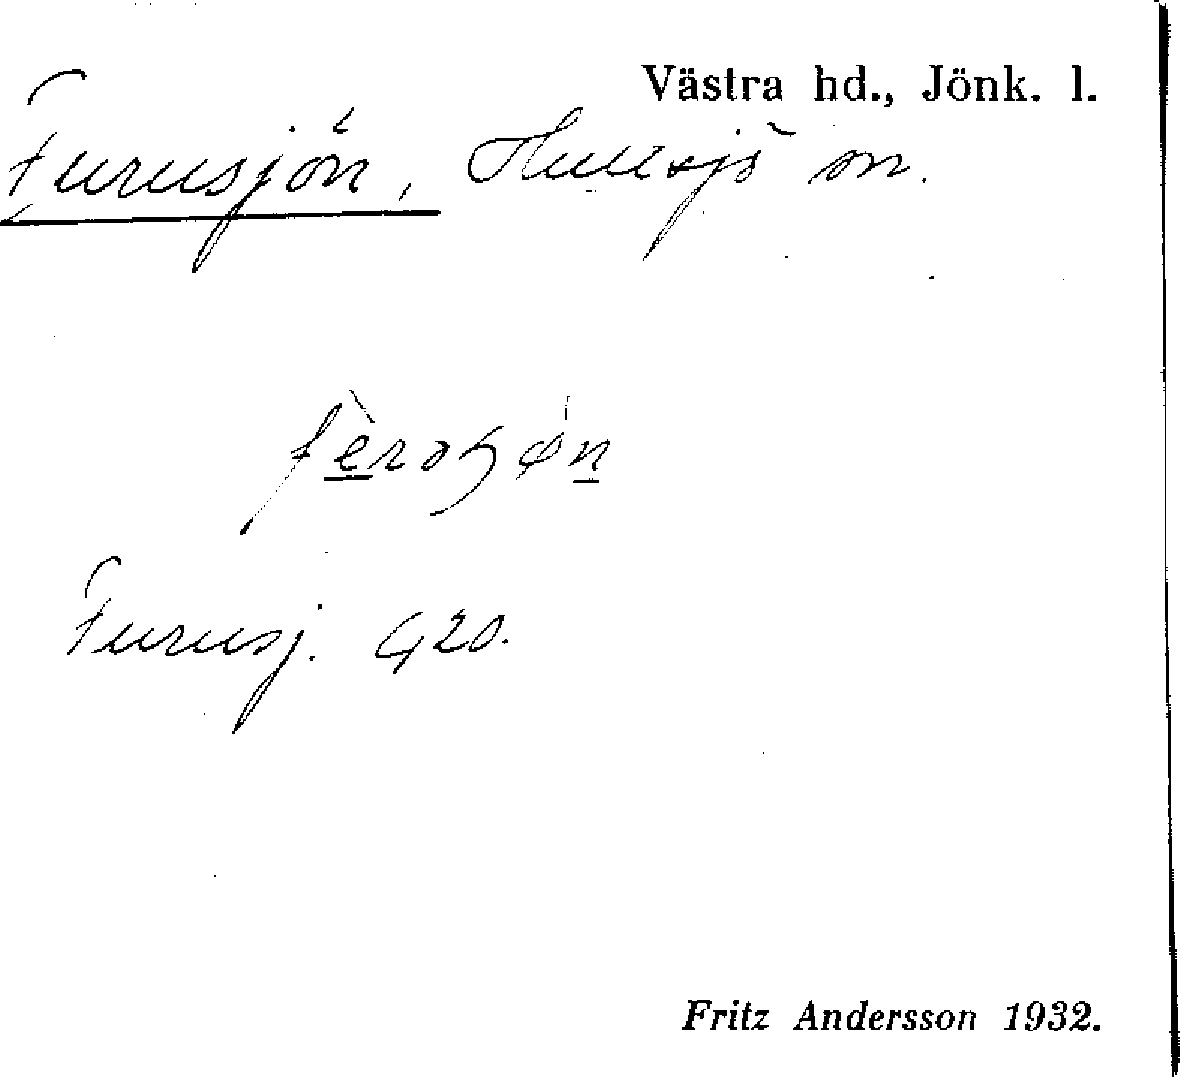 Västra hd., Jönk. l.
Furusjön, Hultsjö sn.
Furusj. G20.
Fritz Andersson 1932.